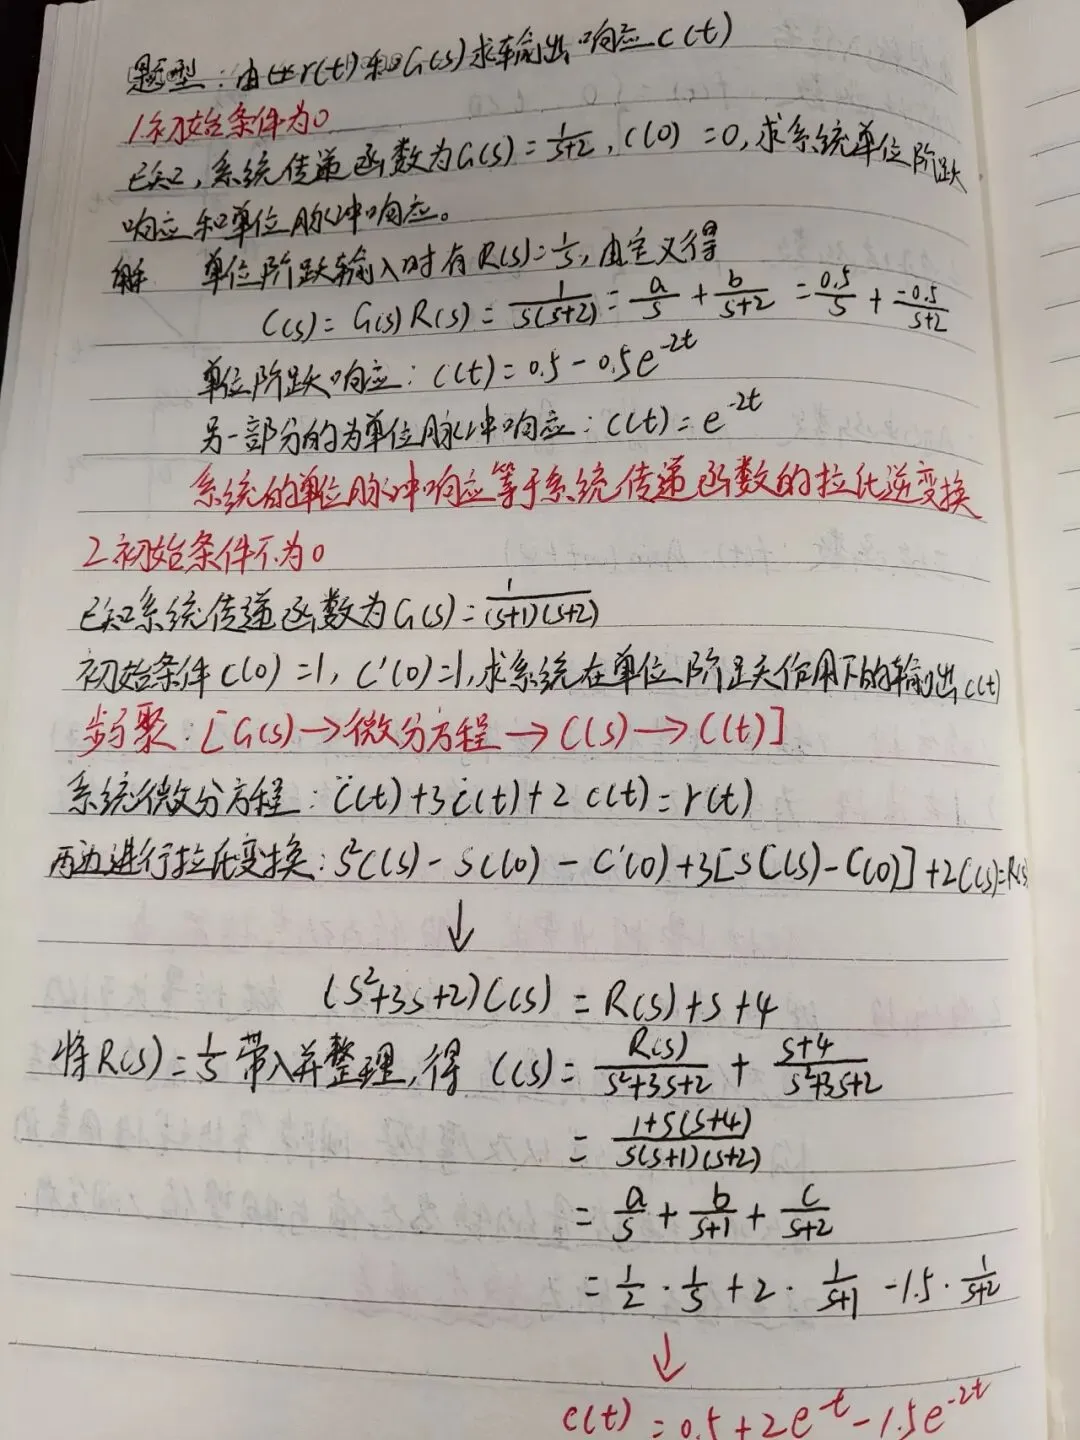 题型：由r(t)和G(s)求输出响应c(t)
1.初始条件为0
已知,系统传递函数为G(s)=1/(s+2),C(0)=0,求系统单位阶跃
响应和单位脉冲响应。
解 单位阶跃输入时有R(s)=1/s,由定义得
C(s)=G(s)R(s)=1/(s(s+2))=a/s+b/(s+2)=0.5/s+(-0.5)/(s+2)
单位阶跃响应：c(t)=0.5-0.5e^(-2t)
另一部分的为单位脉冲响应：c(t)=e^(-2t)
系统的单位脉冲响应等于系统传递函数的拉氏逆变换
2.初始条件不为0
已知系统传递函数为G(s)=1/((s+1)(s+2))
初始条件C(0)=1,C'(0)=1,求系统在单位阶跃作用下的输出c(t)
步聚:[G(s)→微分方程→C(s)→C(t)]
系统微分方程：c̈(t)+3ċ(t)+2c(t)=r(t)
两边进行拉氏变换：s²C(s)-sC(0)-C'(0)+3[sC(s)-C(0)]+2C(s)=R(s)
↓
(s²+3s+2)C(s)=R(s)+s+4
将R(s)=1/s带入并整理,得 C(s)=R(s)/(s²+3s+2)+(s+4)/(s²+3s+2)
=(1+s(s+4))/(s(s+1)(s+2))
=a/s+b/(s+1)+c/(s+2)
=1/2·1/s+2·1/(s+1)-1.5·1/(s+2)
↓
c(t)=0.5+2e^(-t)-1.5e^(-2t)